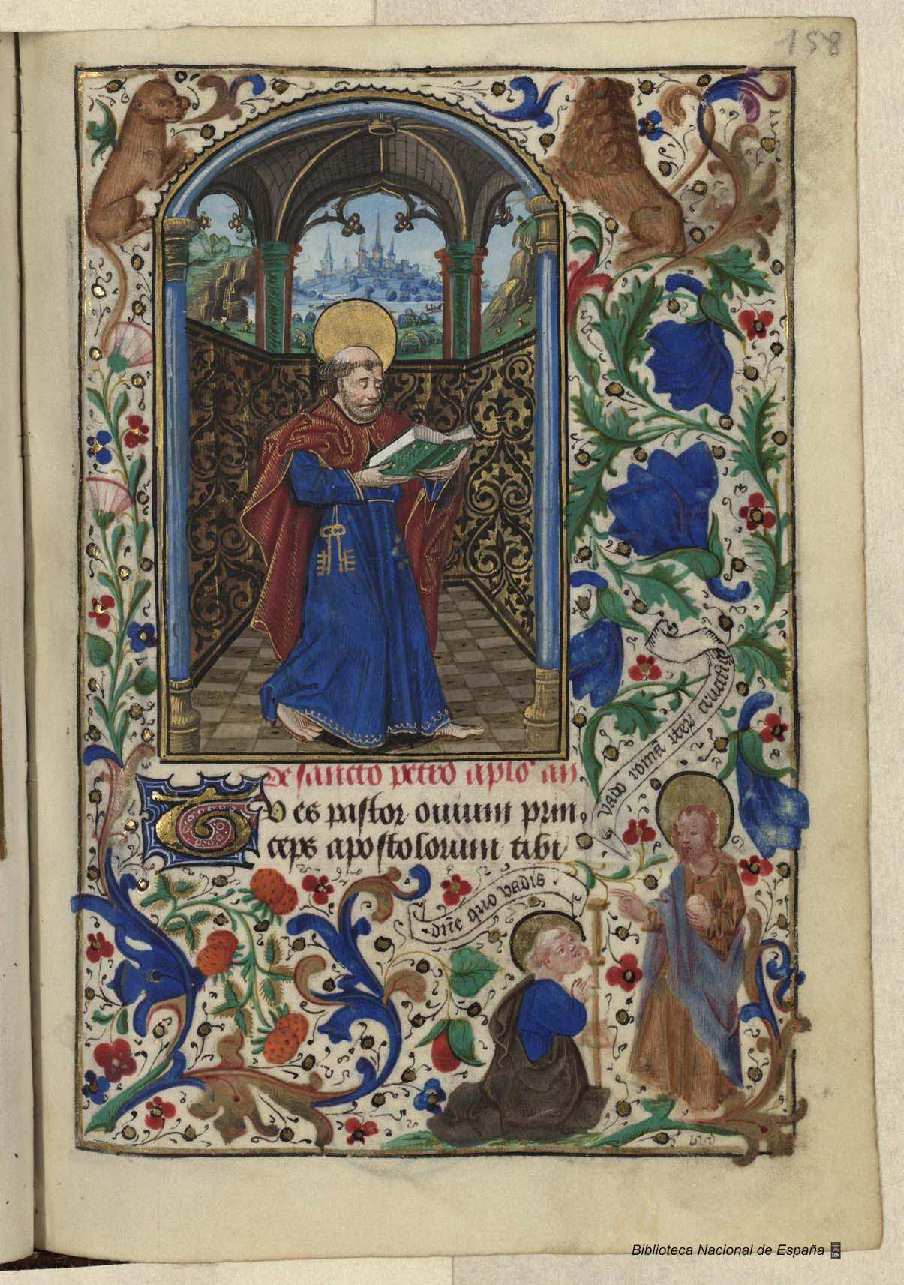 158
De sancto petro aplo an
Tu es pastor ovium prin
ceps apostolorum tibi
dne quo vadis
vado romā iter crucifigi
Biblioteca Nacional de España